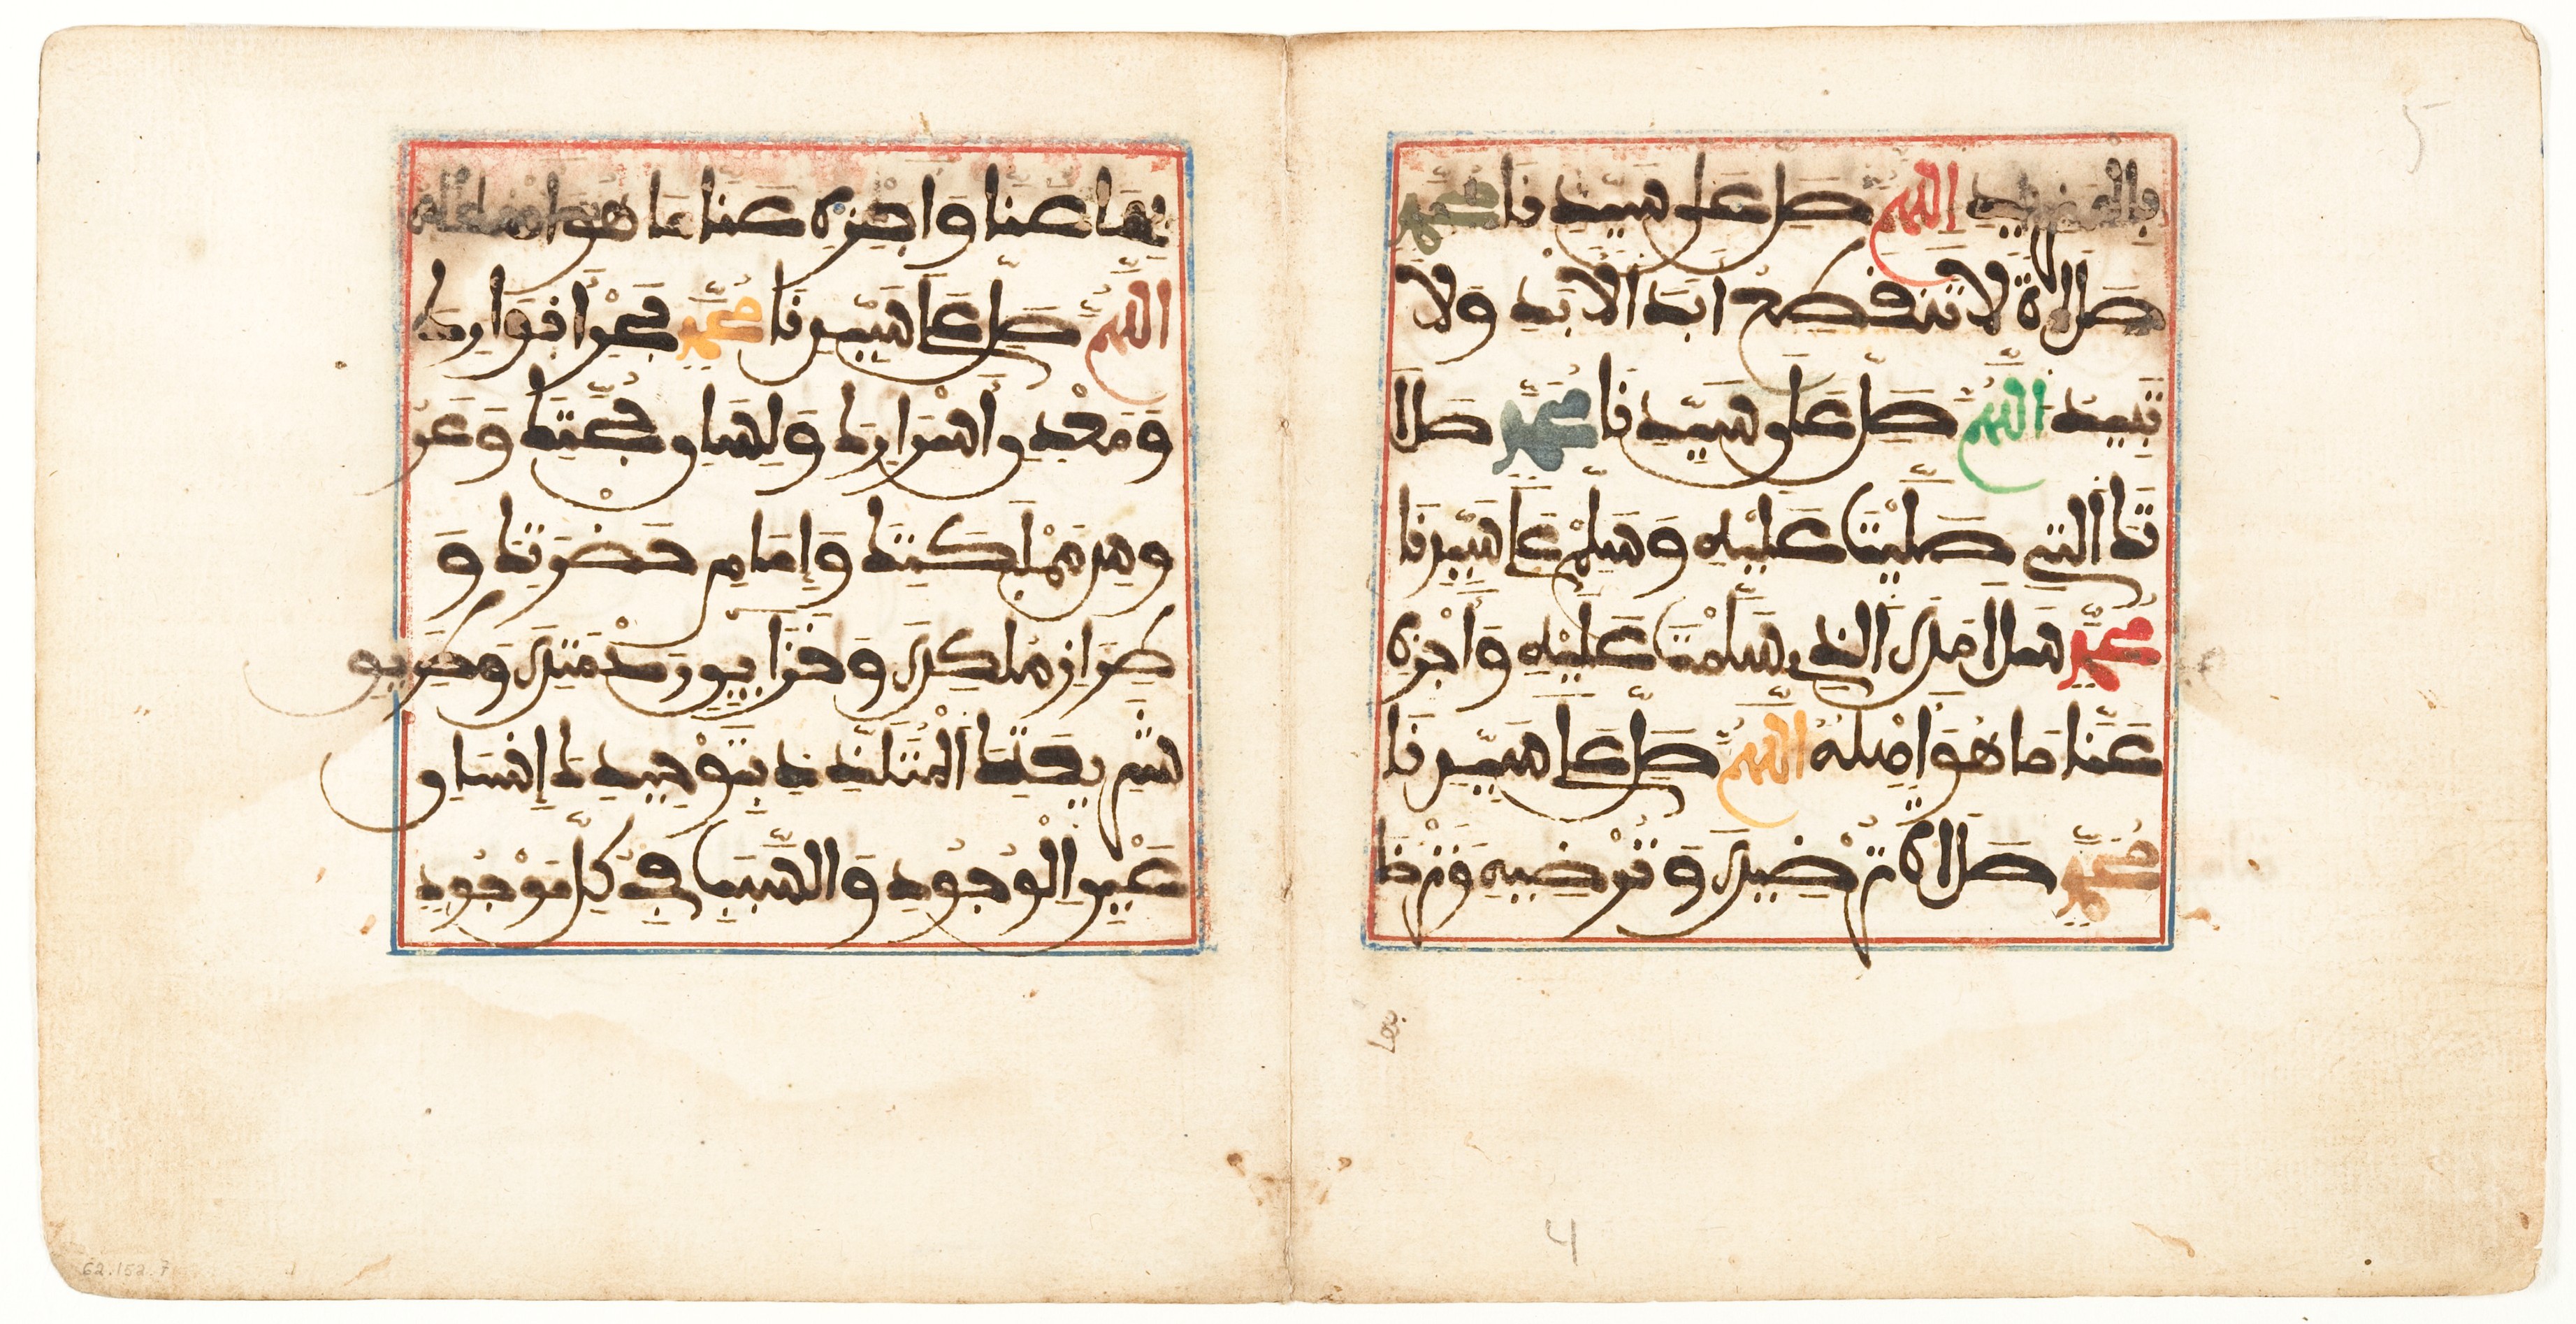 بالمزيد اللهم صل على سيدنا محمد
صلاة لا تنقطع ابد الابد ولا
تبيد اللهم صل على سيدنا محمد صلا
تك التي صليت عليه وسلم على سيدنا
محمد سلامك الذي سلمت عليه واجزه
عنا ما هو اهله اللهم صل على سيدنا
محمد صلاة ترضيك وترضيه وترضا
بها عنا واجزه عنا ما هو اهله
اللهم صل على سيدنا محمد بحر انوارك
ومعدن اسرارك ولسان حجتك وعر
وس مملكتك وإمام حضرتك و
طراز ملكك وخزاين رحمتك وطريق
شريعتك المتلذذ بتوحيدك إنسان
عين الوجود والسبب في كل موجود
5
4
62.152.7